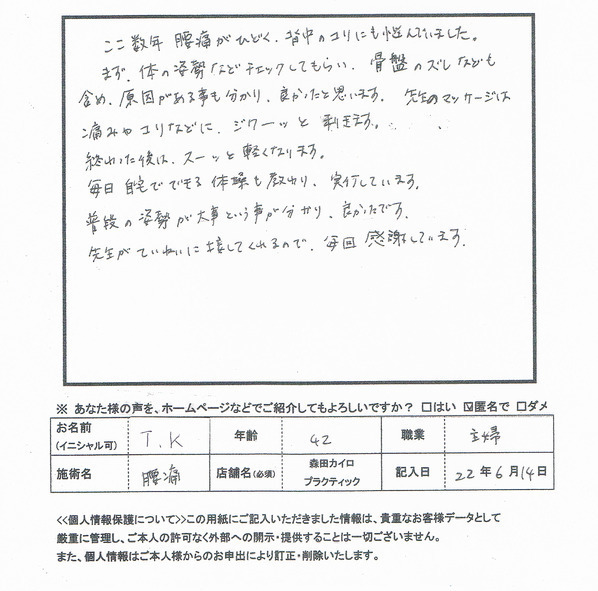 ここ数年 腰痛がひどく、背中のコリにも悩んでいました。
まず、体の姿勢などチェックしてもらい、骨盤のズレなども
含め、原因がある事も分かり、良かったと思います。 先生のマッサージは
痛みやコリなどに、ジワーッと利きます。
終わった後は、スーッと軽くなります。
毎日 自宅でできる体操も教わり、実行しています。
普段の姿勢が大事という事が分かり、良かったです。
先生がていねいに接してくれるので、毎回 感謝しています。
※ あなた様の声を、ホームページなどでご紹介してもよろしいですか? □はい ☑匿名で □ダメ
お名前 (イニシャル可) T.K 年齢 42 職業 主婦
施術名 腰痛 店舗名(必須) 森田カイロプラクティック 記入日 22年6月14日
<<個人情報保護について>>この用紙にご記入いただきました情報は、貴重なお客様データとして
厳重に管理し、ご本人の許可なく外部への開示・提供することは一切ございません。
また、個人情報はご本人様からのお申出により訂正・削除いたします。